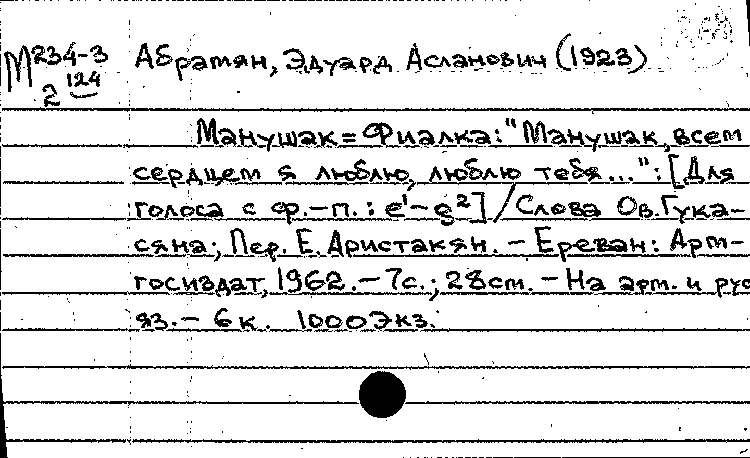 М234-3 Абрамян, Эдуард Асланович (1923)
2 124
Манушак = Фиалка: "Манушак, всем
сердцем я люблю, люблю тебя...": [Для
голоса с ф.-п.: e¹-g²] / Слова Ов. Гука-
сяна; Пер. Е. Аристакян. - Ереван: Арм-
госиздат, 1962. - 7с.; 28см. - На арм. и рус
яз. - 6к. 1000 экз.